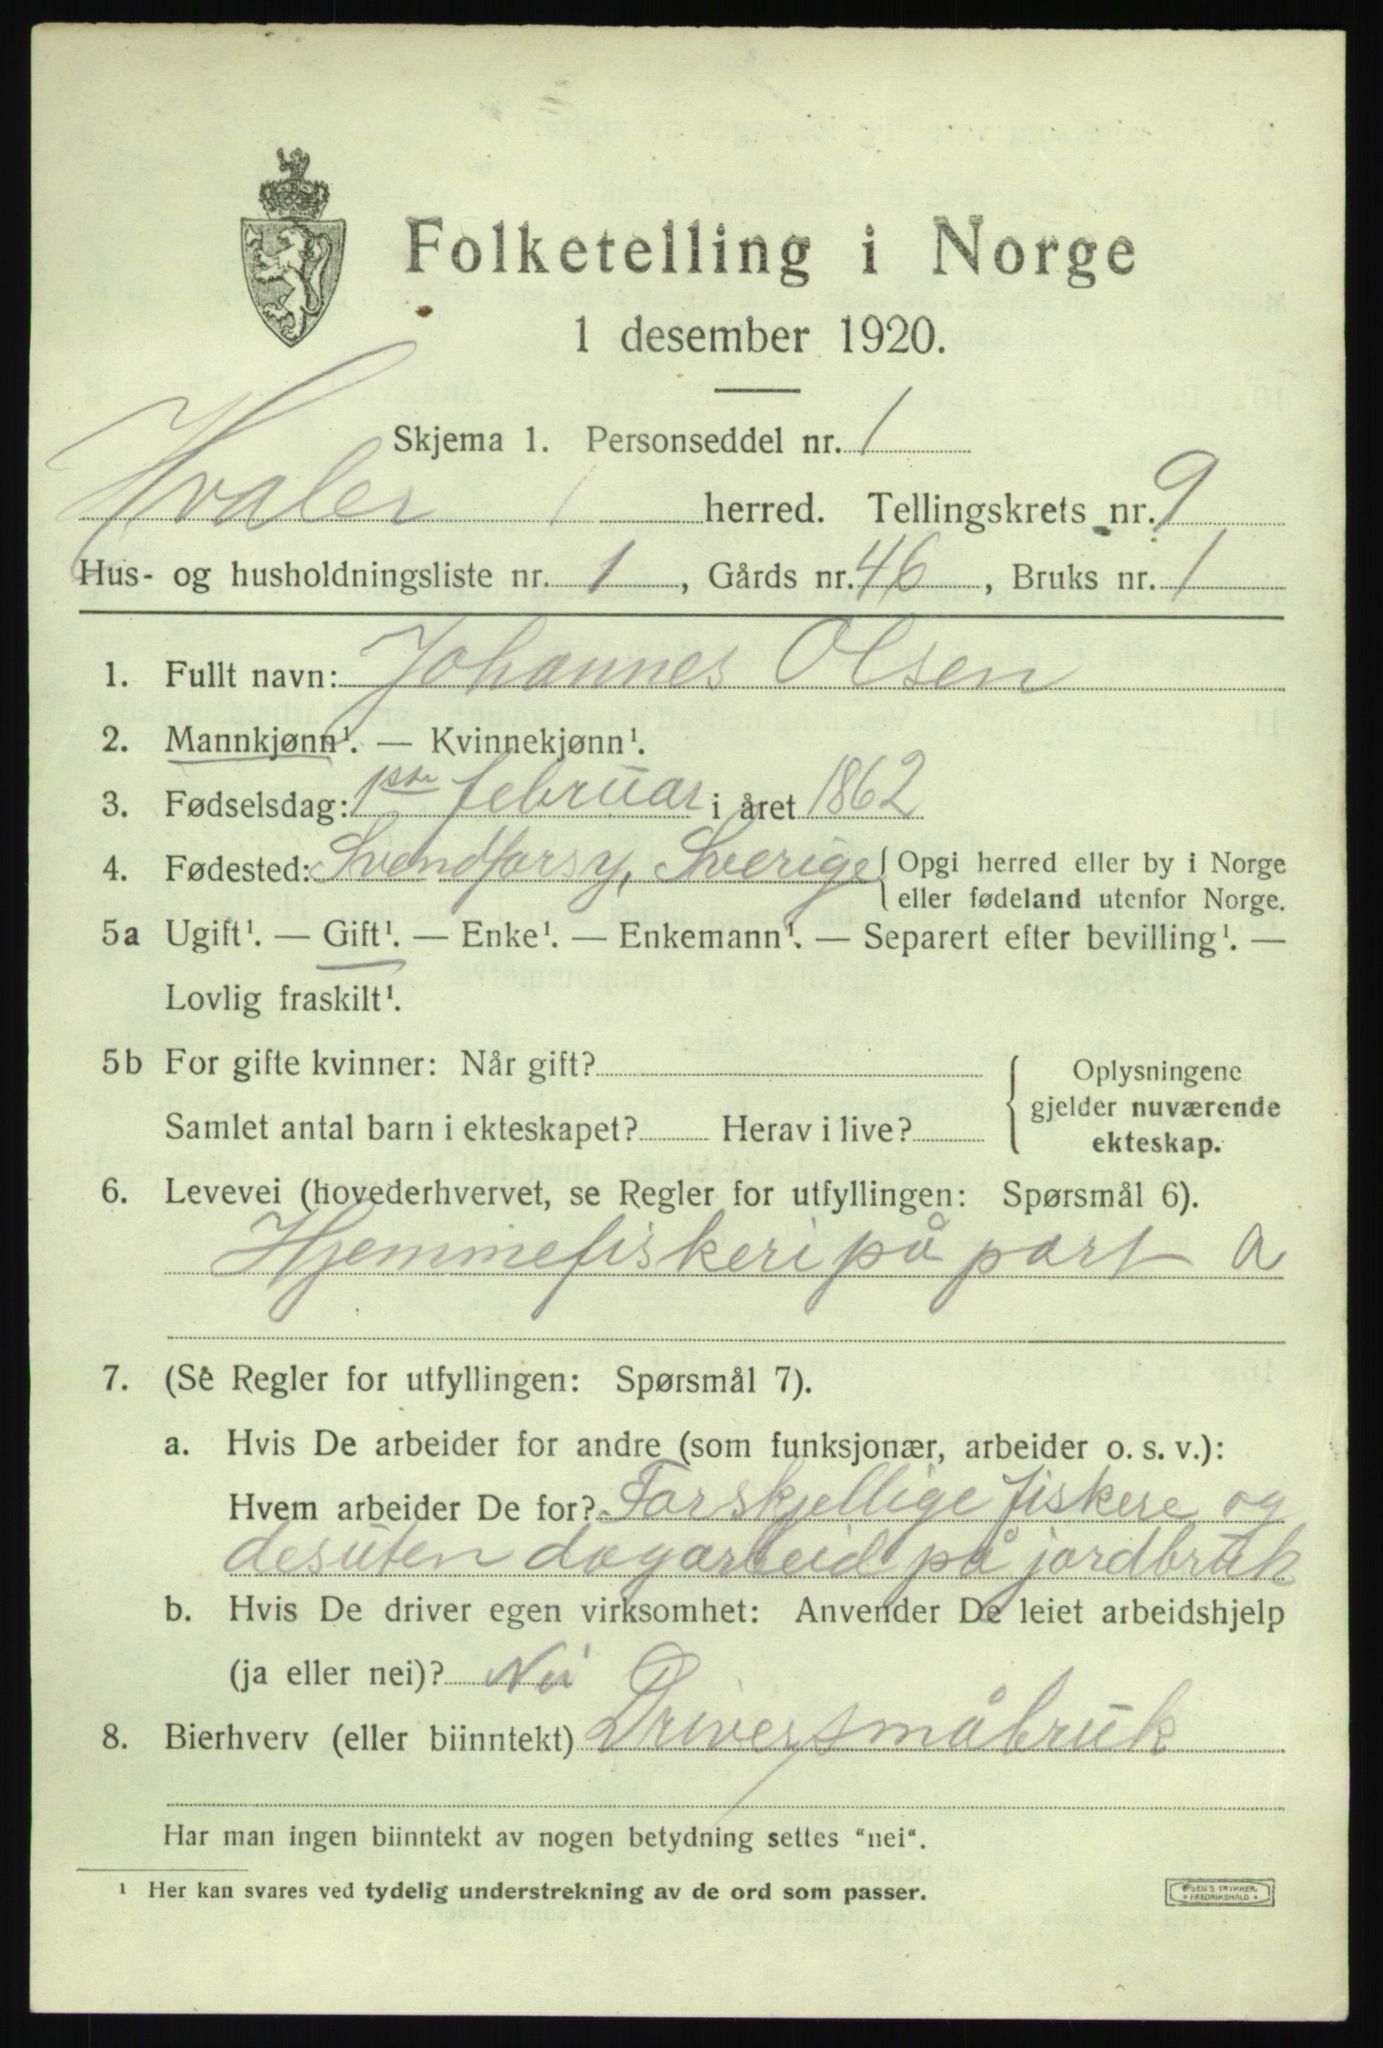 Folketelling i Norge
1 desember 1920.
Skjema 1. Personseddel nr. 1
Hvaler herred. Tellingskrets nr. 9
Hus- og husholdningsliste nr. 1, Gårds nr. 46, Bruks nr. 1
1. Fullt navn: Johannes Olsen
2. Mannkjønn¹. — Kvinnekjønn¹.
3. Fødselsdag: 1ste februar i året 1862
4. Fødested: Sverige { Opgi herred eller by i Norge
eller fødeland utenfor Norge.
5a Ugift¹. — Gift¹. — Enke¹. — Enkemann¹. — Separert efter bevilling¹. —
Lovlig fraskilt¹.
5b For gifte kvinner: Når gift? { Oplysningene
gjelder nuværende
Samlet antal barn i ekteskapet? Herav i live?
ekteskap.
6. Levevei (hovederhvervet, se Regler for utfyllingen: Spørsmål 6).
Hjemmefiskeri på part a
7. (Se Regler for utfyllingen: Spørsmål 7).
a. Hvis De arbeider for andre (som funksjonær, arbeider o. s. v.):
Hvem arbeider De for? Forskjellige fiskere og
desuten dagarbeid på jordbruk
b. Hvis De driver egen virksomhet: Anvender De leiet arbeidshjelp
(ja eller nei)? Nei
8. Bierhverv (eller biinntekt) Driver småbruk
Har man ingen biinntekt av nogen betydning settes "nei".
¹ Her kan svares ved tydelig understrekning av de ord som passer.
TRYKKERI
FREDRIKSHALD